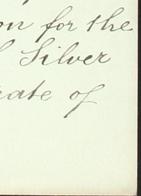 on for the
l Silver
cate of